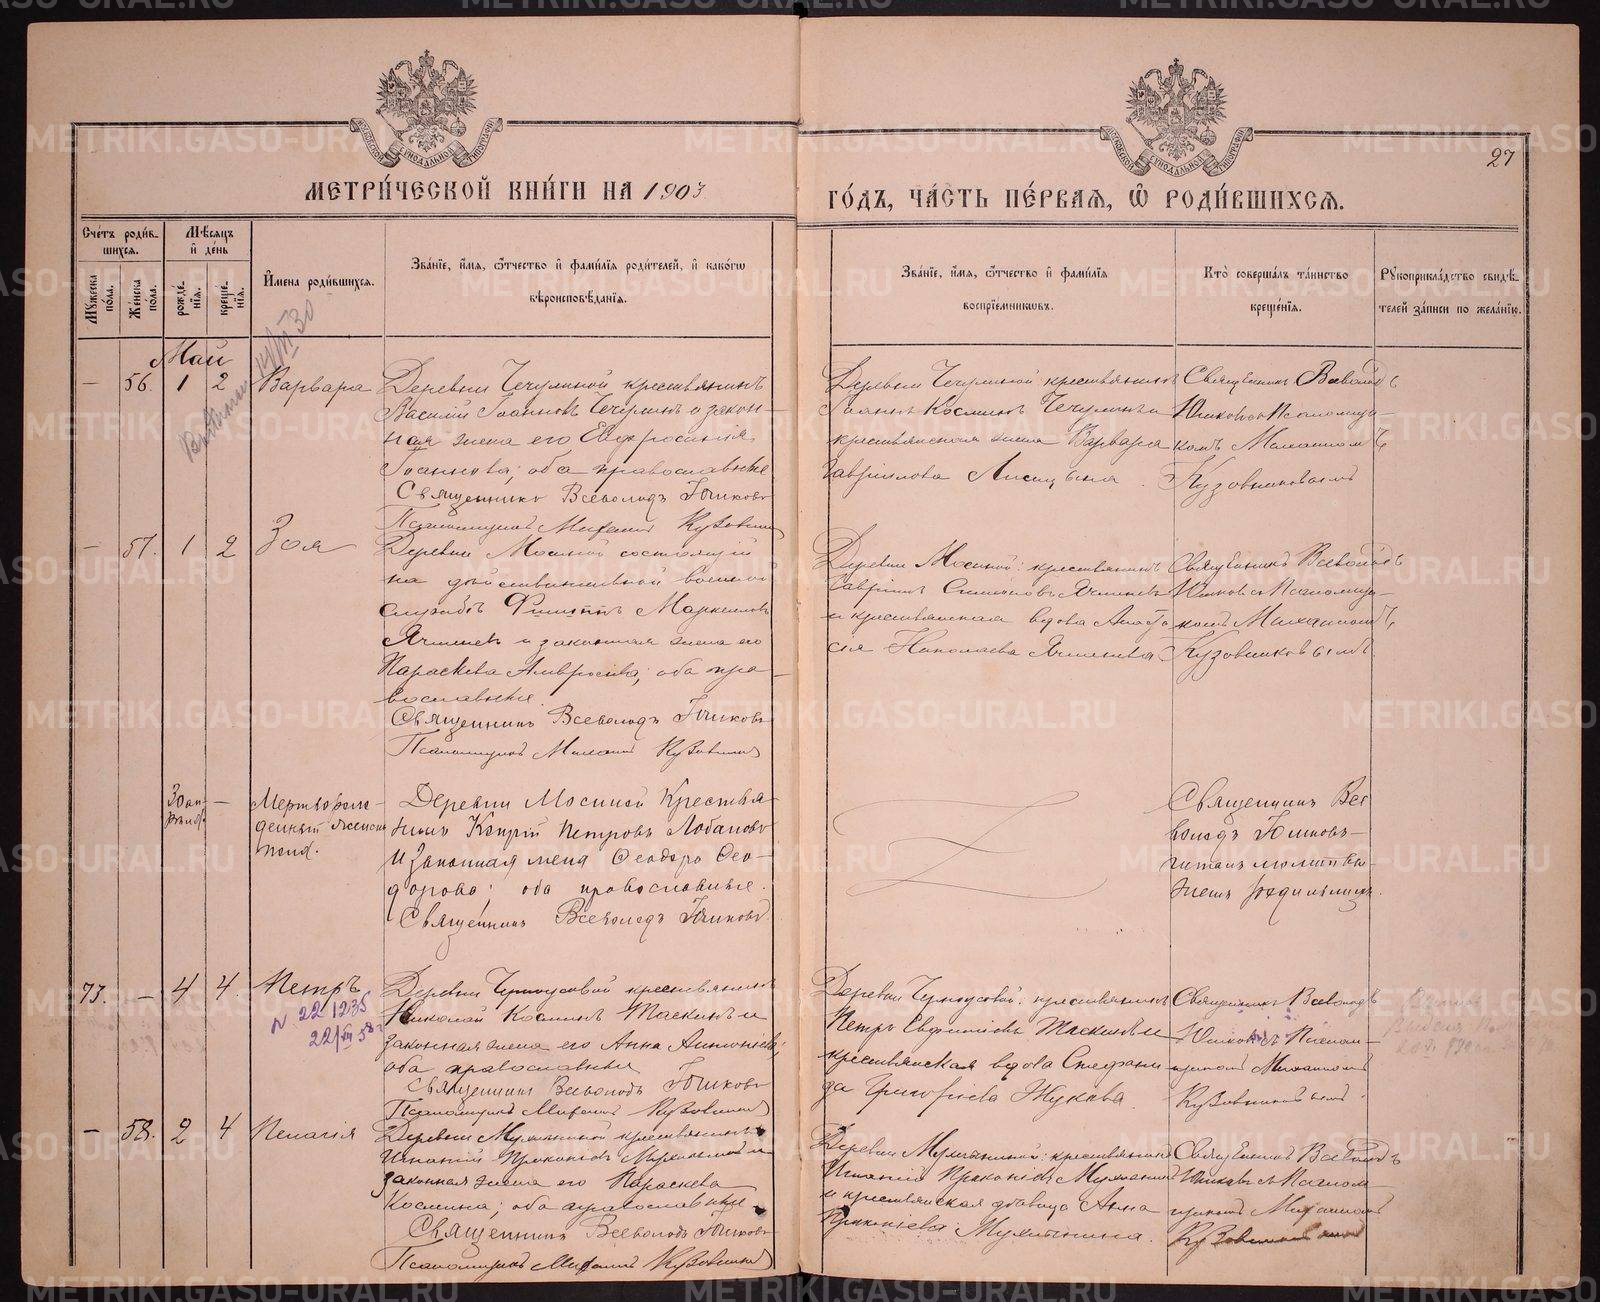 МЕТРИ́ЧЕСКОЙ КНИ́ГИ НА 1903
ГО́ДЪ, ЧА́СТЬ ПЕ́РВАѦ, Ѽ РОДИ́ВШИХСѦ.
27
Сче́тъ роди́в-
шихсѧ.
Мꙋжеска пола.
Же́нска по́ла.
Мѣсѧцъ
и҆ де́нь
рожде́-
нїѧ.
креще́-
нїѧ.
И҆мена роди́вшихсѧ.
Зва́нїе, и҆́мѧ, ѻ҆́тчество и҆ фами́лїѧ роди́телей, и҆ како́гѡ
вѣроисповѣ́данїѧ.
Зва́нїе, и҆́мѧ, ѻ҆́тчество и҆ фами́лїѧ
воспрїе́мникѡвъ.
Кто̀ соверша́лъ та́инство
креще́нїѧ.
Рꙋкоприкла́дство свидѣ́-
телей за́писи по жела́нїю.
Май
— 56. 1 2 Варвара
Деревни Чечулиной крестьянинъ
Василій Іоанновъ Чечулинъ и закон-
ная жена его Евфросинія
Іоаннова; оба православные
Священникъ Всеволодъ Юшковъ
Псаломщикъ Михаилъ
Деревни Чечулиной крестьянинъ
Іоаннъ Косминъ Чечулинъ и
крестьянская жена Варвара
Гавріилова Лисицына.
Священникъ Всеволодъ
Юшковъ съ Псаломщи-
комъ Михаиломъ
Кузовниковымъ
— 57. 1 2 Зоя
Деревни Мосиной состоящій
на дѣйствительной военной
службѣ Филиппъ Маркелловъ
Ячменевъ и законная жена его
Параскева Амвросіева; оба пра-
вославные.
Священникъ Всеволодъ Юшковъ
Псаломщикъ Михаилъ
Деревни Мосиной: крестьянинъ
Гавріилъ Ячменевъ
и крестьянская вдова Анаста-
сія Николаева Ячменева
Священникъ Всеволодъ
Юшковъ съ Псаломщи-
комъ Михаиломъ
Кузовниковымъ.
30 ап-
рѣля. —
Мертворож-
денный женск.
пола.
Деревни Мосиной Крестья-
нинъ Петровъ Лобановъ
и законная жена Ѳеодора Ѳео-
дорова; оба православные.
Священникъ Всеволодъ Юшковъ
Священникъ Все-
володъ Юшковъ
читалъ молитвы
родильницѣ.
73. — 4 4. Петръ
N 22 1235
22/XII 58 г
Деревни Черноусовой крестьянинъ
Николай Косминъ Таскинъ и
законная жена его Анна Антоніева;
оба православные
Священникъ Всеволодъ Юшковъ
Псаломщикъ Михаилъ
Деревни Черноусовой: крестьянинъ
Петръ Евфиміевъ Таскинъ и
крестьянская вдова Стефани-
да Григоріева Жукова.
Священникъ Всеволодъ
Юшковъ съ Псалом-
щикомъ Михаиломъ
Кузовниковымъ.
— 58. 2 4 Пелагія
Деревни Мухлыниной крестьянинъ
Игнатій Прокопіевъ Мухлынинъ и
законная жена его Параскева
Космина; оба православные.
Священникъ Всеволодъ Юшковъ
Псаломщикъ Михаилъ
Деревни Мухлыниной: крестьянинъ
Прокопіевъ Мухлынинъ
и крестьянская дѣвица Анна
Прокопіева Мухлынина.
Священникъ Всеволодъ
Юшковъ съ Псалом-
щикомъ Михаиломъ
METRIKI.GASO-URAL.RU